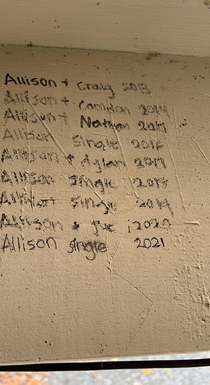 Allison + Craig 2013
Allison + Camdon 2014
Allison + Nathan 2015
Allison Single 2016
Allison + Dylan 2017
Allison Single 2018
Allison Single 2019
Allison + 2020
Allison single 2021